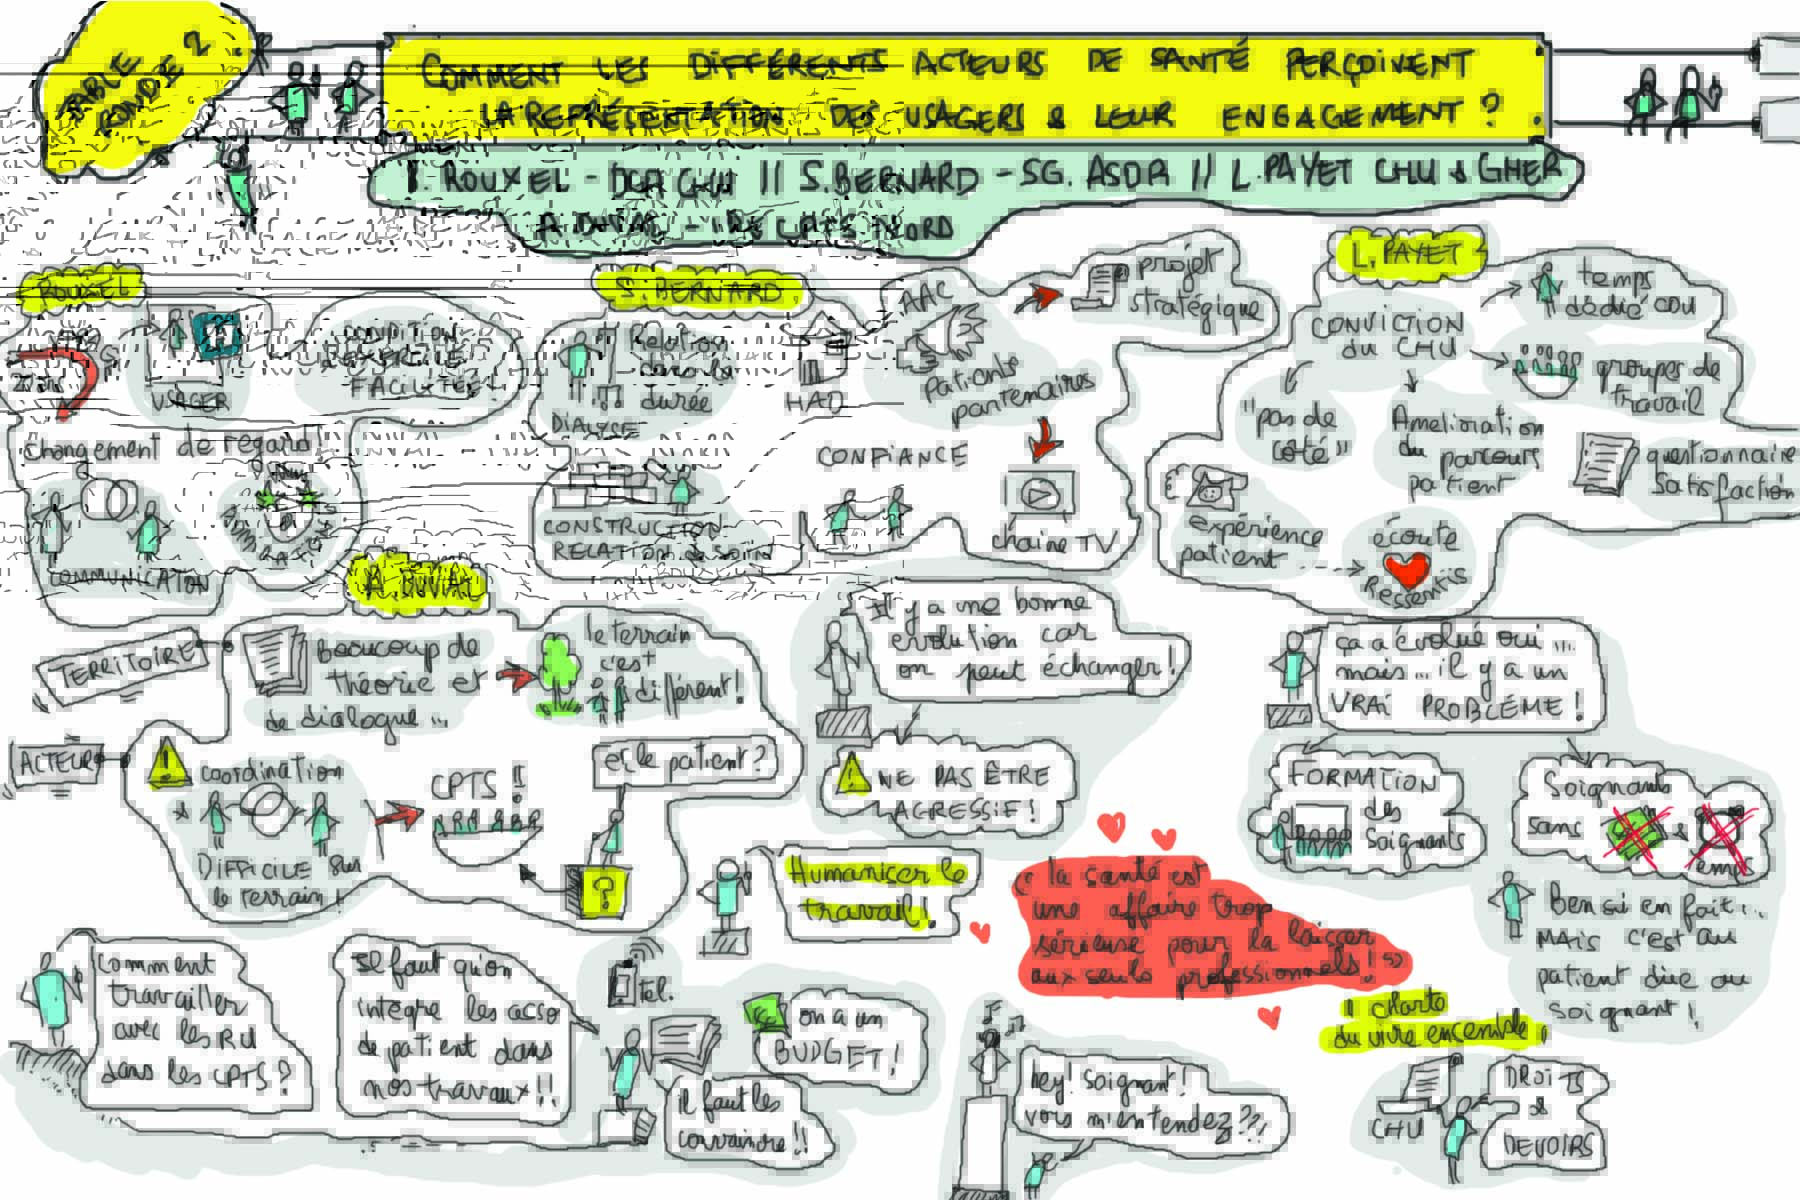 TABLE
RONDE 2
COMMENT LES DIFFÉRENTS ACTEURS DE SANTÉ PERÇOIVENT
LA REPRÉSENTATION DES USAGERS & LEUR ENGAGEMENT ?
ROUXEL - DCA CHU // S.BERNARD - SG. ASDR // L.PAYET CHU & GHER
A. DUVAL - CPTS NORD
ROUXEL
USAGER
CONDITION
D'EXERCICE
FACILITÉE
changement de regard
COMMUNICATION
S. BERNARD
Relation
dans la
durée
DIALYSE
HAD
CONSTRUCTION
RELATION de soin
AAC
projet
stratégique
Patients
partenaires
CONFIANCE
chaine TV
L. PAYET
CONVICTION
du CHU
temps
dédié CDU
groupes de
travail
"pas de
côté"
Amelioration
du parcours
patient
questionnaire
satisfaction
expérience
patient
écoute
Ressentis
A. DUVAL
TERRITOIRE
Beaucoup de
théorie et
de dialogue...
le terrain
c'est
différent!
ACTEUR
!
coordination
DIFFICILE sur
le terrain!
CPTS !!
et le patient?
?
Il y a une bonne
evolution car
on peut échanger!
! NE PAS ÊTRE
AGRESSIF!
ça a évolué oui ...
mais... il y a un
VRAI PROBLÈME!
FORMATION
des
Soignants
Soignants
sans &
temps
Ben si en fait!..
MAIS c'est au
patient du
soignant!
Humaniser le
travail!
la santé est
une affaire trop
sérieuse pour la laisser
aux seuls professionnels! "
charte
du vivre ensemble,
comment
travailler
avec les RU
dans les CPTS?
Il faut qu'on
intègre les asso
de patient dans
nos travaux!!
tel.
on a un
BUDGET!
il faut les
convaincre!!
hey! Soignant!
vous m'entendez??!
CHU
DROITS
&
DEVOIRS